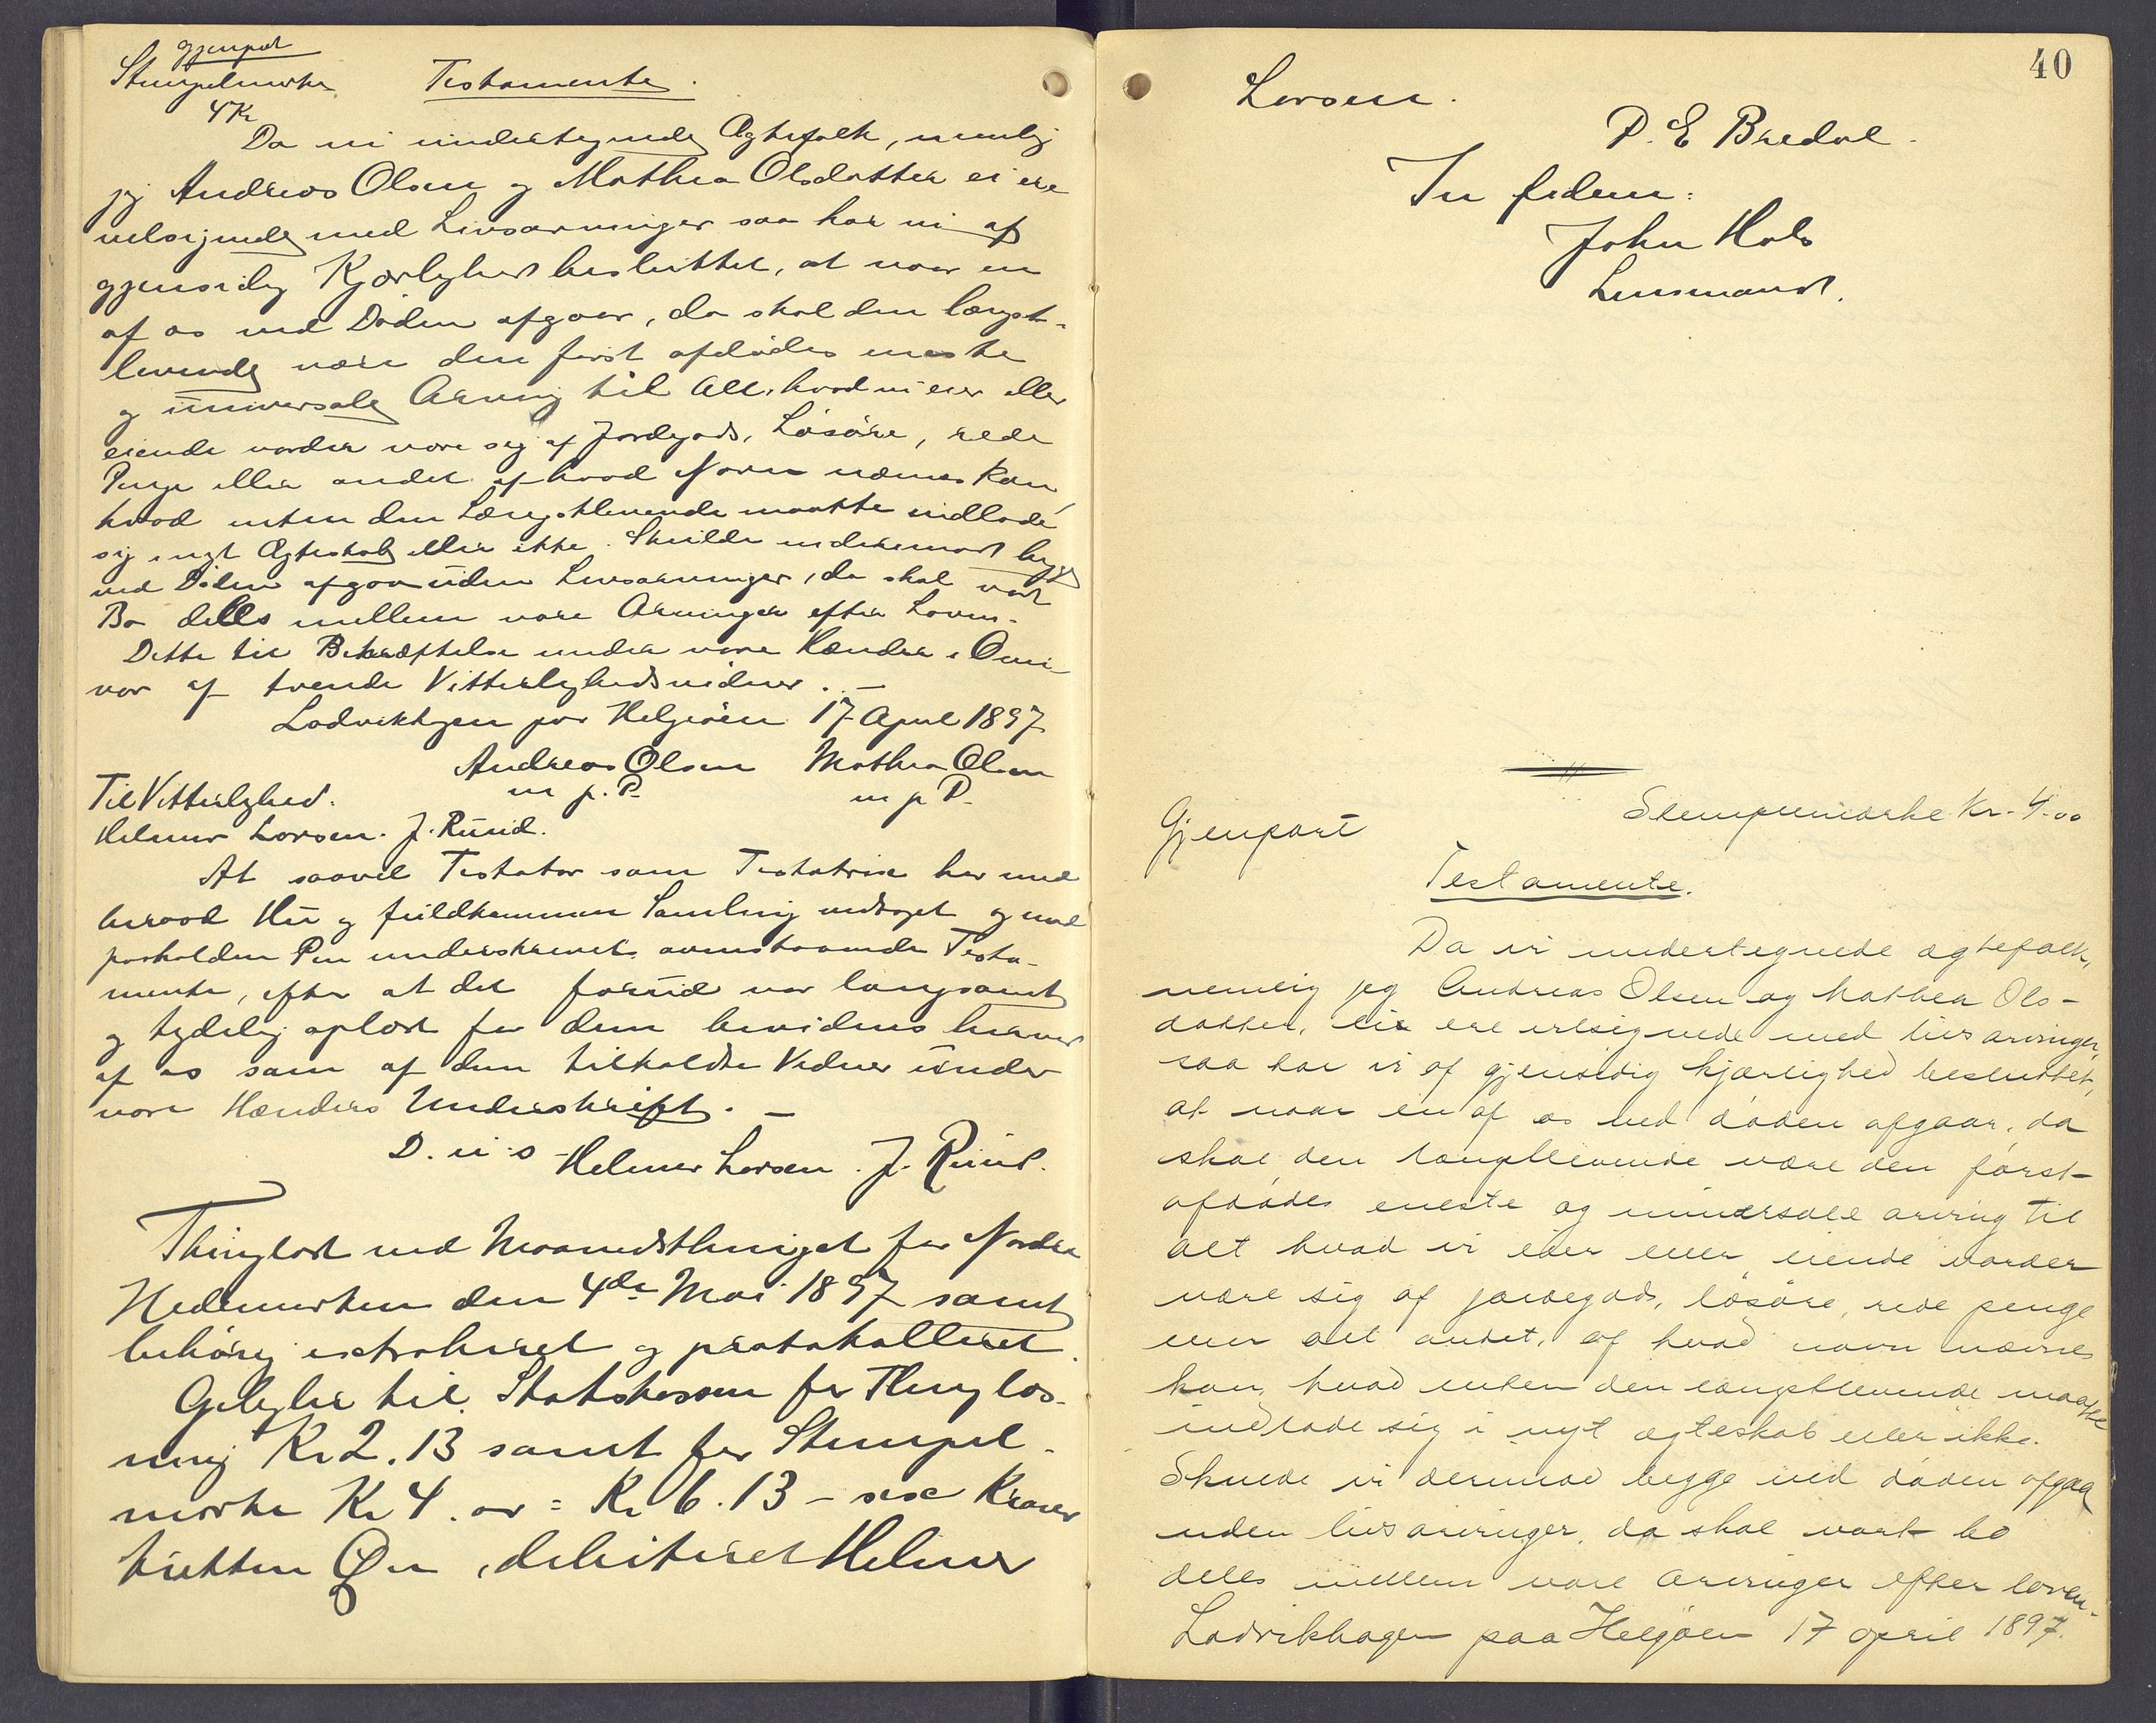 gjenpart
Stempelmerke Testamente.
4 Kr
Da vi undertegnede Ægtefolk, nemlig
jeg Andreas Olsen og Mathea Olsdatter ei ere
velsignede med Livsarvinger saa har vi af
gjensidig Kjærlighed besluttet, at naar en
af os ved Døden afgaar, da skal den længst-
levende være den først afdødes eneste
og universale Arving til Alt, hvad vi eier eller
eiende vorder være sig af Jordegods, Løsøre, rede
Penge eller andet af hvad Navn nævnes kan,
hvad enten den Længstlevende maatte indlade
sig i nyt Ægteskab eller ikke. Skulde vi derimod begge
ved Døden afgaa uden Livsarvinger, da skal vort
Bo deles mellem vore Arvinger efter Loven.
Dette til Bekræftelse under vore Hænder i Over-
vær af tvende Vitterlighedsvidner. –
Ladvikhagen paa Helgøen 17 April 1897
Andreas Olsen Mathea Olsen
m p. P. m p P.
Til Vitterlighed.
Helmer Larsen. J. Ruud.
At saavel Testator som Testatrix har med
beraad Hu og fuldkommen Samling vedtaget og med
paaholden Pen underskrevet ovenstaaende Testa-
mente, efter at det forud var langsomt
og tydelig oplæst for dem bevidnes herved
af os som af dem tilkaldte Vidner under
vore Hænders Underskrift. –
D. u. s. Helmer Larsen. J. Ruud.
Thinglæst ved Maanedsthinget for Nordre
Hedemarken den 4de Mai 1897 samt
behørig extraheret og protokolleret.
Gebyhr til Statskassen for Thinglæs-
ning Kr 2.13 samt for Stempel-
merke Kr 4.00 = Kr 6.13 – sex Kroner
tretten Øre, debiteret Helmer
40
Larsen.
P. E Bredal.
In fidem:
John Hals
Lensmand.
Gjenpart Stempelmærke Kr. 4.00
Testamente.
Da vi undertegnede ægtefolk,
nemlig jeg Andreas Olsen og Mathea Ols-
datter, ei ere velsignede med livsarvinger,
saa har vi af gjensidig kjærlighed besluttet,
at naar en af os ved døden afgaar, da
skal den længstlevende være den først-
afdødes eneste og universale arving til
alt hvad vi eier eller eiende vorder
være sig af jordegods, løsøre, rede penge
eller alt andet, af hvad navn nævnes
kan, hvad enten den længstlevende maatte
indlade sig i nyt ægteskab eller ikke.
Skulde vi derimod begge ved døden afgaa
uden livsarvinger, da skal vort bo
deles mellem vore arvinger efter loven.
Ladvikhagen paa Helgøen 17 april 1897.